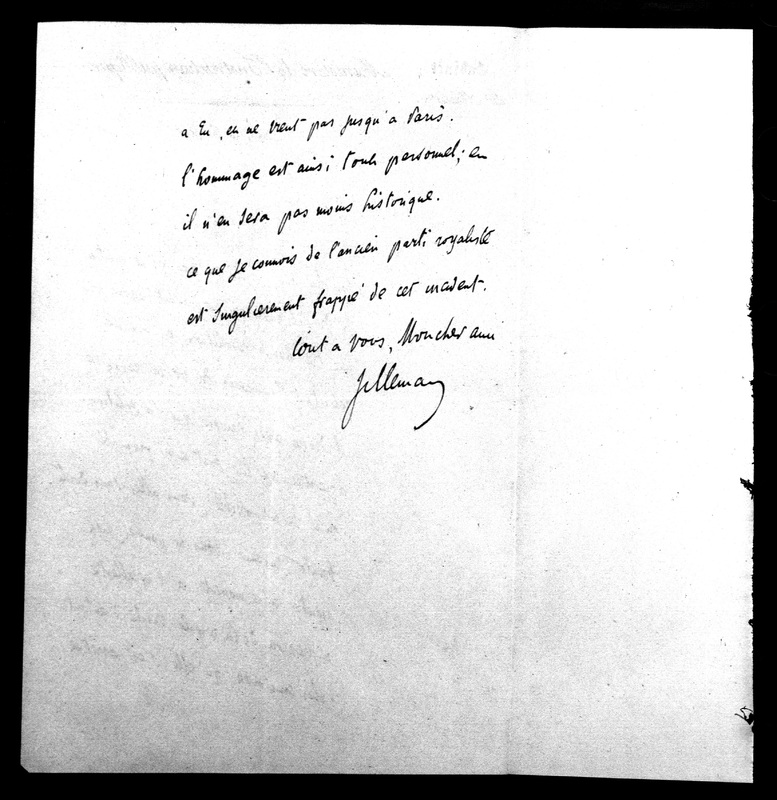 a Eu, en ne vient pas jusqu'a Paris.
l'hommage est ainsi tout personnel; en
il n'en sera pas moins historique.
ce que je connois de l'ancien parti royaliste
est singulierement frappé de cet incident.
tout a vous, Mon cher ami
Villemain